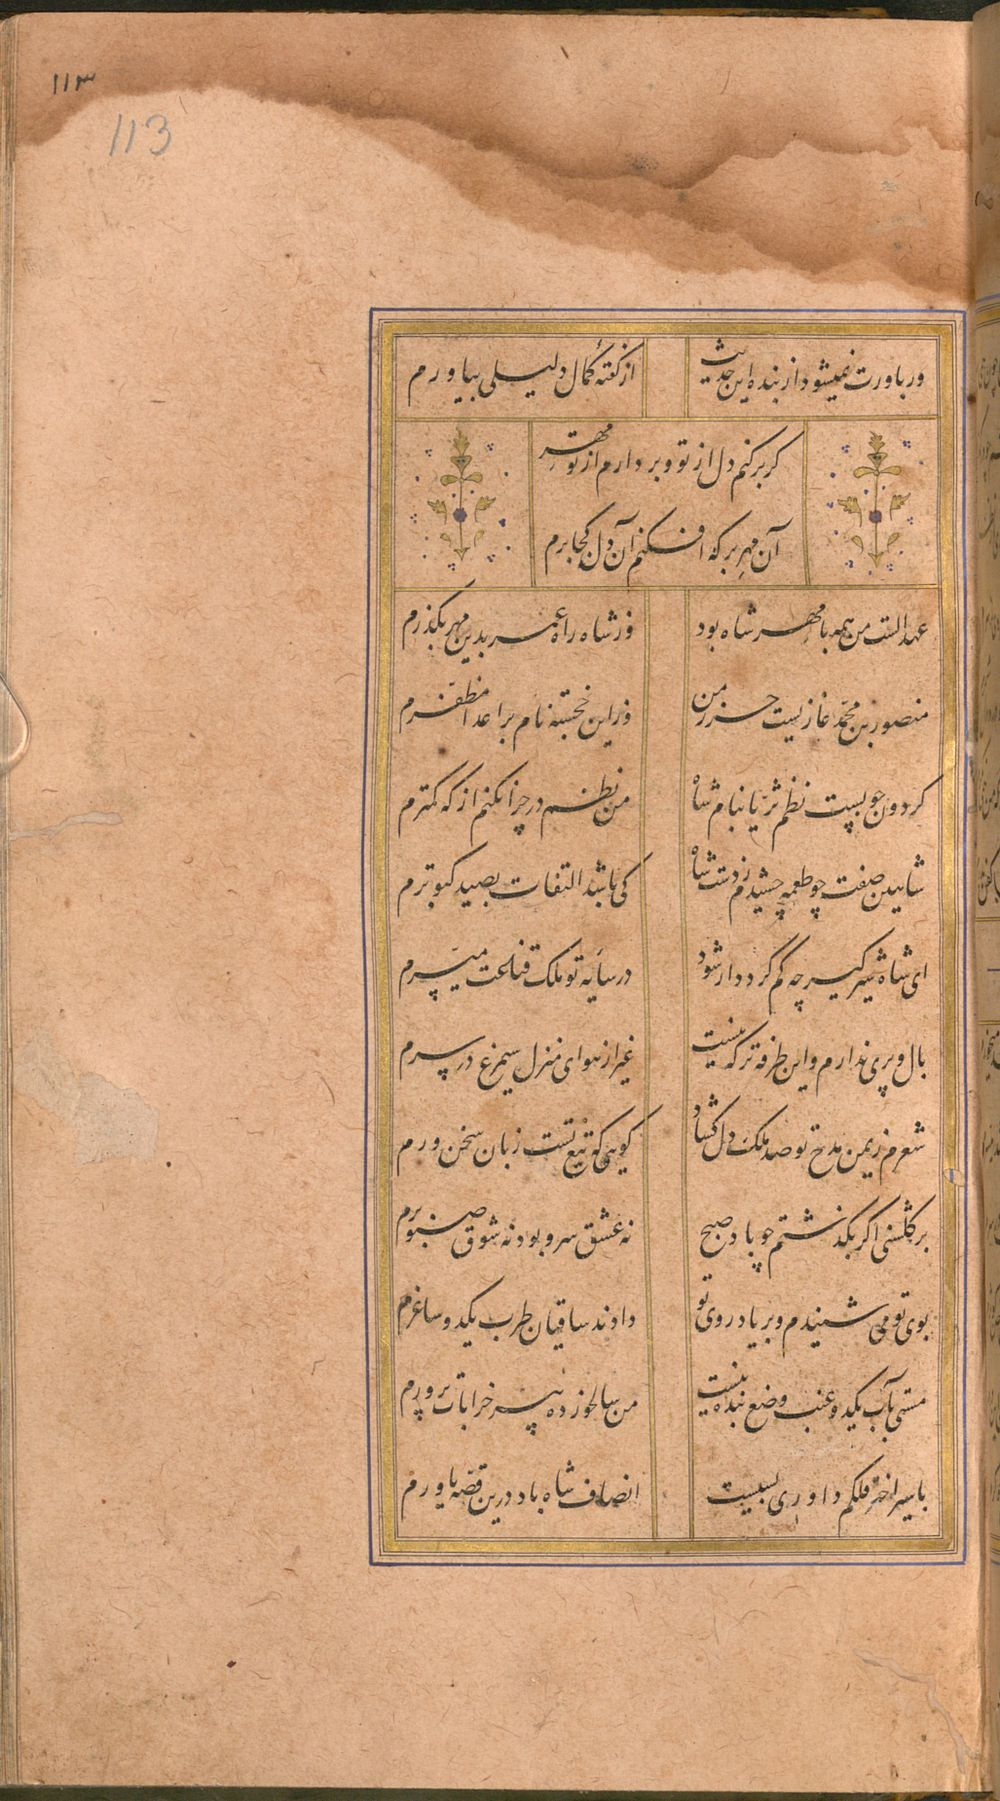 ۱۱۳
113
ور باورت نمیشود از بنده این حدیث
از گفتهٔ کمال دلیلی بیاورم
کر برکنم دل از تو و بردارم از تو مهر
آن مهر بر که افکنم آن دل کجا برم
عهد الست من همه با مهر شاه بود
وز شاه راه عمر بدین مهر بگذرم
منصور بن محمد غازیست حرز من
وز این خجسته نام بر اعدا مظفرم
کردون چو بست نظم ثریا بنام شاه
من نظم در چرا نکنم از که کمترم
شاهین صفت چو طعمه چشیدم ز دست شاه
کی باشد التفات بصید کبوترم
ای شاه شیرگیر چه کم گردد ار شود
در سایه تو ملک قناعت میسرم
بال و پری ندارم و این طرفه تر که نیست
غیر از هوای منزل سیمرغ در سرم
شعرم ز یمن مدح تو صد ملک دل کشاد
کویی که تیغ تست زبان سخن ورم
بر گلشنی اگر بگذشتم چو باد صبح
نه عشق سرو بود نه شوق صنوبرم
بوی تو می شنیدم و بر یاد روی تو
دادند ساقیان طرب یکدو ساغرم
مستی بآب یکدو عنب وضع بنده نیست
من سالخورده پیر خرابات پرورم
با سیر اختر فلکم داوری بسیست
انصاف شاه باد درین قصه یاورم